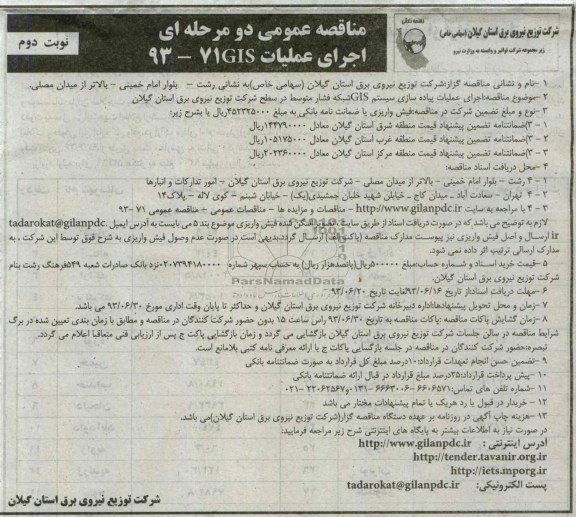 شرکت توزیع نیروی برق استان گیلان (سهامی خاص)
زیر مجموعه شرکت توانیر و وابسته به وزارت نیرو
مناقصه عمومی دو مرحله ای
اجرای عملیات GIS ۷۱ – ۹۳
نوبت دوم
۱ –نام و نشانی مناقصه گزار:شرکت توزیع نیروی برق استان گیلان (سهامی خاص)به نشانی رشت – بلوار امام خمینی – بالاتر از میدان مصلی،
۲–موضوع مناقصه:اجرای عملیات پیاده سازی سیستم GISشبکه فشار متوسط در سطح شرکت توزیع نیروی برق استان گیلان
۳–نوع و مبلغ تضمین شرکت در مناقصه:فیش واریزی یا ضمانت نامه بانکی به مبلغ ۴۵۲۳۲۵۰۰۰ریال یا بشرح زیر:
۱–۳)ضمانتنامه تضمین پیشنهاد قیمت منطقه شرق استان گیلان معادل ۱۴۴۷۹۰۰۰۰ریال
۲–۳)ضمانتنامه تضمین پیشنهاد قیمت منطقه غرب استان گیلان معادل ۱۰۵۱۷۵۰۰۰ریال
۳–۳)ضمانتنامه تضمین پیشنهاد قیمت منطقه مرکز استان گیلان معادل ۲۰۲۳۶۰۰۰۰ریال
۴–محل دریافت اسناد مناقصه:
۱–۴ رشت – بلوار امام خمینی – بالاتر از میدان مصلی – شرکت توزیع نیروی برق استان گیلان – امور تدارکات و انبارها
۲–۴ تهران – سعادت آباد – میدان کاج – خیابان شهید خلیان جمشیدی(یک) – خیابان شبنم – کوی لاله – پلاک۱۴
۳–۴ با مراجعه به سایت http://www.gilanpdc.ir – مناقصات و مزایده ها – مناقصات عمومی – مناقصه عمومی ۷۱–۹۳
لازم به توضیح می باشد که در صورت دریافت اسناد از طریق سایت، مناقصه گران فیش واریزی موضوع بند ۵ می بایست به آدرس ایمیل tadarokat@gilanpdc.
ir ارسال و اصل فیش واریزی نیز پیوست مدارک مناقصه (پاکت الف) ارسال گردد.بدیهی است در صورت عدم وصول فیش واریزی به شرح فوق توسط این شرکت ، به
مدارک ارسالی ترتیب اثر داده نمی شود.
۵–قیمت خرید اسناد و شماره حساب:مبلغ ۵۰۰۰۰۰ریال(پانصدهزار ریال) به حساب سپهر شماره ۰۲۰۷۳۹۴۱۸۰۰۰۰نزد بانک صادرات شعبه ۵۴۹فرهنگ رشت بنام
شرکت توزیع نیروی برق استان گیلان.
۶–مهلت دریافت اسناد:از تاریخ ۹۳/۰۶/۱۶لغایت تاریخ ۹۳/۰۶/۲۰
۷–زمان و محل تحویل پیشنهادها:اداره دبیرخانه شرکت توزیع نیروی برق استان گیلان و حداکثر تا پایان وقت اداری مورخ ۹۳/۰۶/۳۰ می باشد.
۸–زمان گشایش پاکات مناقصه :پاکات مناقصه به تاریخ ۹۳/۰۶/۳۰ راس ساعت ۱۵ بدون حضور شرکت کنندگان در مناقصه و مطابق با زمان بندی تعیین شده در برگ
شرایط مناقصه در سالن جلسات شرکت توزیع نیروی برق استان گیلان بازگشایی می گردد و زمان بازگشایی پاکت ج پس از ارزیابی فنی متعاقبا اعلام می گردد.
تبصره:حضور شرکت کنندگان در مناقصه در جلسه بازگشایی پاکات ج با ارائه معرفی نامه کتبی بلامانع است.
۹–تضمین حسن انجام تعهدات قرارداد:۱۰درصد مبلغ کل قرارداد به صورت ضمانتنامه بانکی
۱۰–پیش پرداخت قرارداد:۲۵درصد مبلغ قرارداد در قبال ارائه ضمانتنامه بانکی
۱۱–شماره تلفن های تماس:۶۶۰۶۵۷۱–۶۶۶۳۰۰۶–۰۱۳۱ و۲۲۰۶۲۵۶۷–۰۲۱
۱۲– خریدار در قبول یا رد هریک یا تمام پیشنهادات مختار می باشد
۱۳–هزینه چاپ آگهی در روزنامه بر عهده دستگاه مناقصه گزار(شرکت توزیع نیروی برق استان گیلان)می باشد.
در صورت نیاز به اطلاعات بیشتر به پایگاه های اینترنتی شرح زیر مراجعه فرمایید:
آدرس اینترنتی : http://www.gilanpdc.ir
http://tender.tavanir.org.ir
http://iets.mporg.ir
پست الکترونیکی: tadarokat@gilanpdc.ir
شرکت توزیع نیروی برق استان گیلان
ParsNamadData